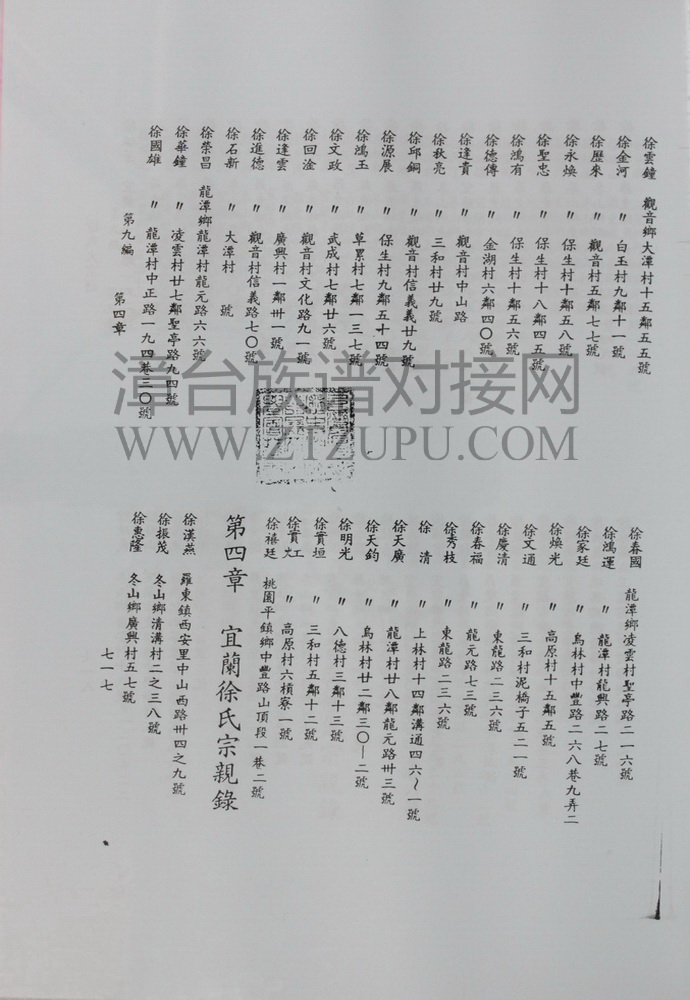 徐雲鐘 觀音鄉大潭村十五鄰五五號
徐金河 〃 白玉村九鄰十一號
徐歷來 〃 觀音村五鄰七七號
徐永煥 〃 保生村十鄰五八號
徐聖忠 〃 保生村十八鄰四五號
徐鴻有 〃 保生村十鄰五六號
徐德傳 〃 金湖村六鄰四〇號
徐逢貴 觀音村中山路
徐秋亮 〃 三和村廿九號
徐邱銅 〃 觀音村信義義廿九號
徐源展 〃 保生村九鄰五十四號
徐鴻玉 〃 草累村七鄰一三七號
徐文政 〃 武成村七鄰廿六號
徐回淦 〃 觀音村文化路九一號
徐逢雲 〃 廣興村一鄰卅一號
徐進德 觀音村信義路七〇號
徐石新 〃 大潭村 號
徐榮昌 龍潭鄉龍潭村龍元路六六號
徐華鐘 〃 凌雲村廿七鄰聖亭路九四號
徐國雄 〃 龍潭村中正路一九四巷三〇號
第九編 第四章
徐春國 龍潭鄉凌雲村聖亭路二一六號
徐鴻運 〃 龍潭村龍興路二七號
徐家廷 〃 烏林村中豐路二六八巷九弄二
徐煥光 〃 高原村十五鄰五號
徐文通 〃 三和村泥橋子五二一號
徐慶清 東龍路二三六號
徐春福 〃 龍元路七三號
徐秀枝 東龍路二三六號
徐 清 〃 上林村十四鄰溝通四六~一號
徐天廣 龍潭村廿八鄰龍元路卅三號
徐天鈞 〃 烏林村廿二鄰三〇—二號
徐明光 〃 八德村三鄰十三號
徐貫垣 〃 三和村五鄰十二號
徐貫 〃 高原村六櫃寮一號
徐禧廷 桃園平鎮鄉中豐路山頂段一巷二號
第四章 宜蘭徐氏宗親錄
徐漢燕 羅東鎮西安里中山西路卅四之九號
徐振茂 冬山鄉清溝村二之三八號
徐惠隆 冬山鄉廣興村五七號
七一七
漳台族谱对接网
WWW.ZTZUPU.COM